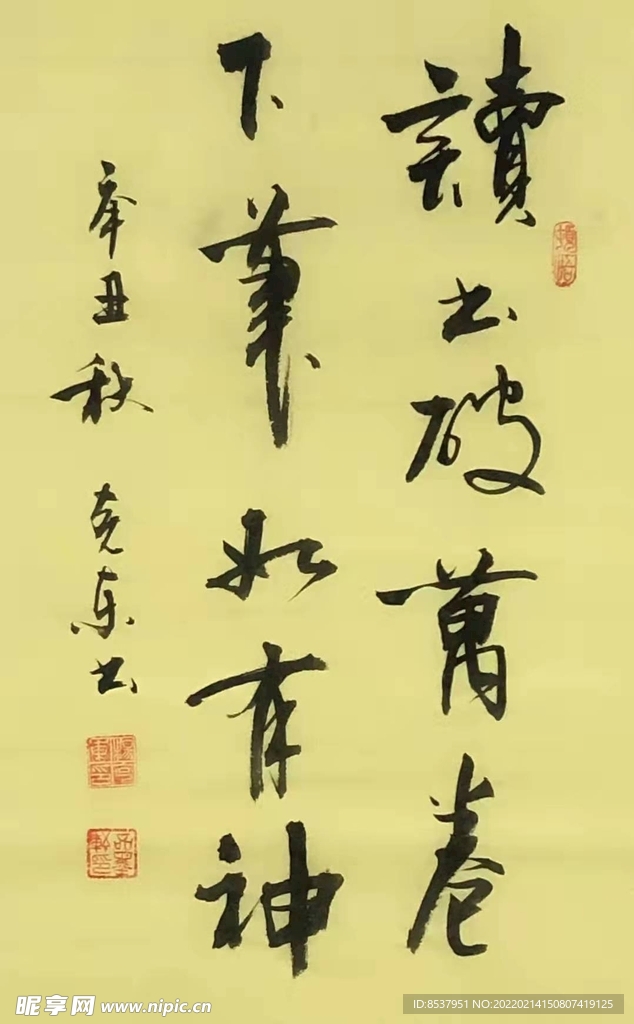 讀书破萬卷
下筆如有神
辛丑秋 克东书
昵享网 www.nipic.cn
ID:8537951 NO:20220214150807419125